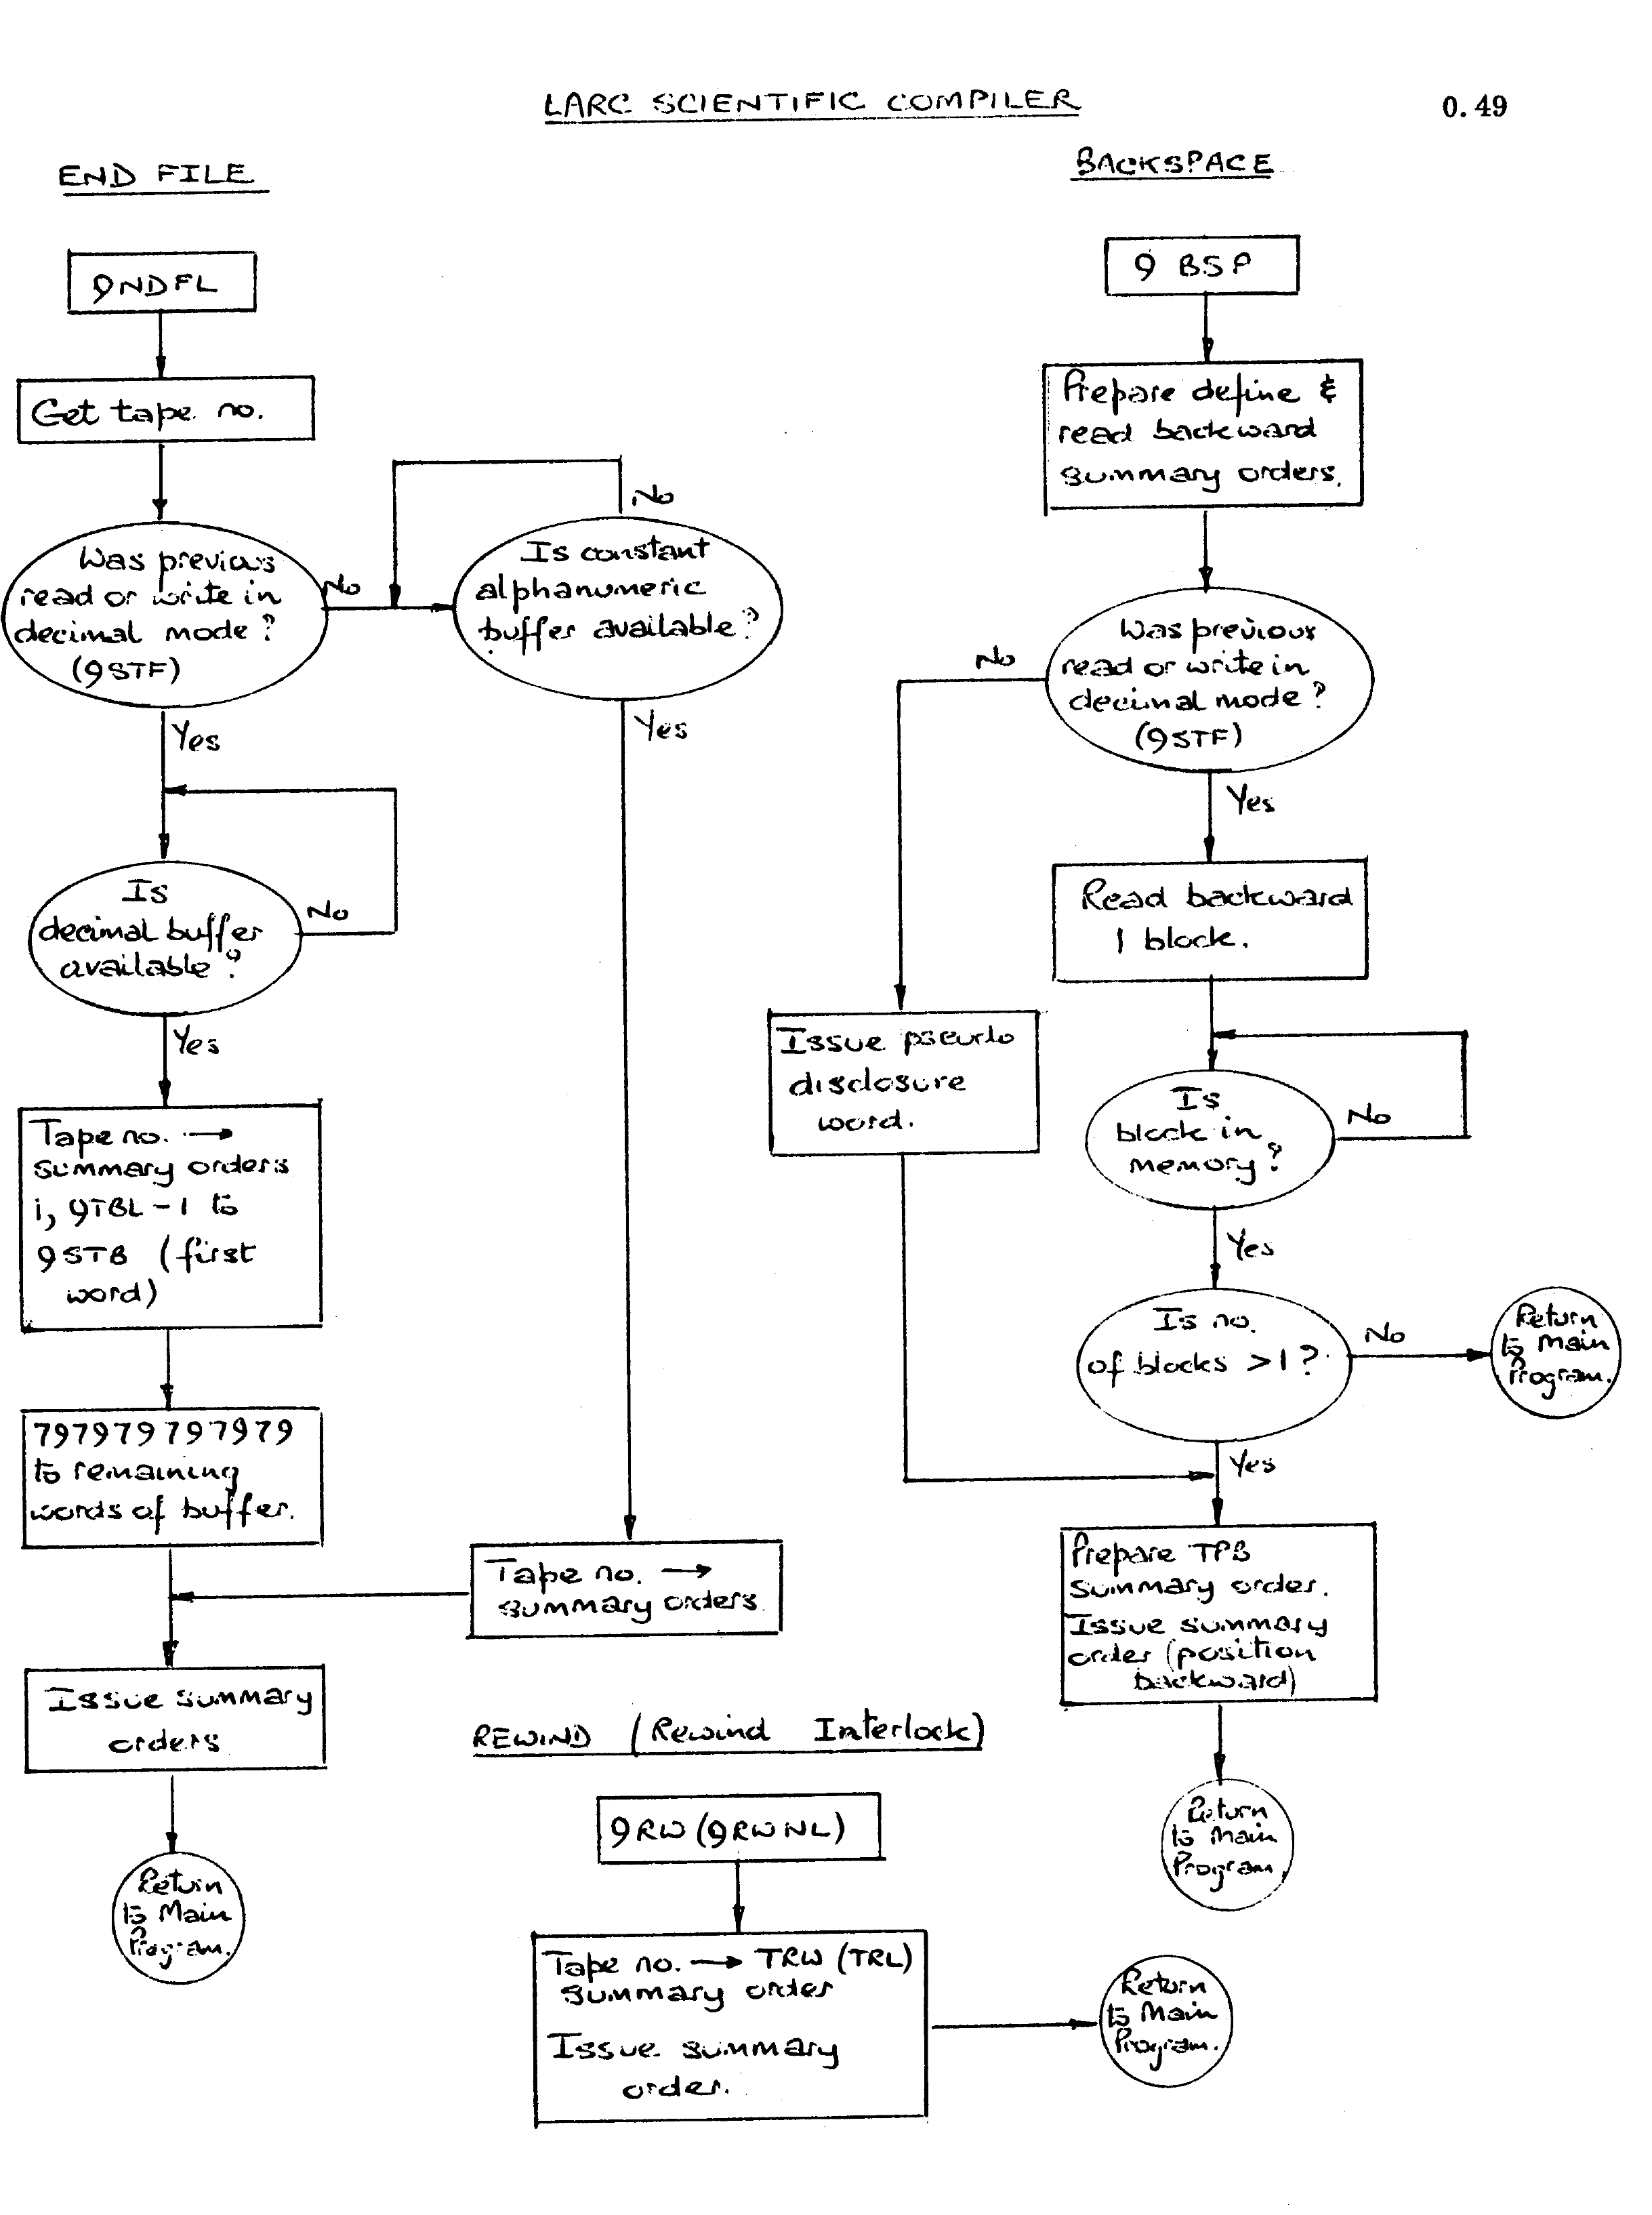 LARC SCIENTIFIC COMPILER
0.49
END FILE
9NDFL
Get tape no.
Was previous
read or write in
decimal mode?
(9STF)
No
Yes
Is constant
alphanumeric
buffer available?
No
Yes
Is
decimal buffer
available?
No
Yes
Tape no. →
summary orders
i, 9TBL - 1 to
9STB (first
word)
797979797979
to remaining
words of buffer.
Tape no. →
summary orders
Issue summary
orders
Return
to Main
Program.
BACKSPACE
9 BSP
Prepare define &
read backward
summary orders.
Was previous
read or write in
decimal mode?
(9STF)
No
Yes
Issue pseudo
disclosure
word.
Read backward
1 block.
Is
block in
memory?
No
Yes
Is no.
of blocks >1?
No
Return
to Main
Program.
Yes
Prepare TPB
summary order.
Issue summary
order (position
backward)
Return
to Main
Program.
REWIND (Rewind Interlock)
9RW (9RWNL)
Tape no. → TRW (TRL)
summary order
Issue summary
order.
Return
to Main
Program.